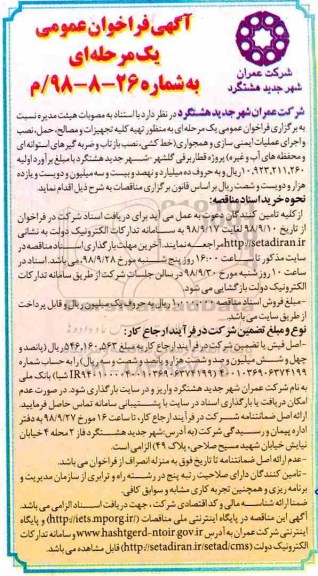 آگهی فراخوان عمومی
یک مرحله‌ای
به شماره ۲۶-۸-۹۸/م
شرکت عمران
شهر جدید هشتگرد
شرکت عمران شهر جدید هشتگرد در نظر دارد با استناد به مصوبات هیئت مدیره نسبت
به برگزاری فراخوان عمومی یک مرحله‌ای به منظور تهیه کلیه تجهیزات و مصالح، حمل، نصب
و اجرای عملیات ایمنی سازی و همجواری (خط کشی، نصب بازتاب و ضربه گیرهای استوانه ای
و محفظه های آب و غیره) پروژه قطار برقی گلشهر - شهر جدید هشتگرد با مبلغ برآورد اولیه
۱۰,۹۲۳,۲۱۱,۲۶۰ ریال و به حروف ده میلیارد و نهصد و بیست و سه میلیون و دویست و یازده
هزار و دویست و شصت ریال بر اساس قانون برگزاری مناقصات به شرح ذیل اقدام نماید.
نحوه خرید اسناد مناقصه:
از کلیه تامین کنندگان دعوت به عمل می آید برای دریافت اسناد شرکت در فراخوان
از تاریخ ۹۸/۹/۱۰ لغایت ۹۸/۹/۱۷ به سامانه تدارکات الکترونیک دولت به نشانی
http://setadiran.ir مراجعه نمایند. آخرین مهلت بارگذاری اسناد مناقصه در
سایت مذکور تا ساعت ۱۶:۰۰ روز پنج شنبه مورخ ۹۸/۹/۲۸ می باشد. اسناد در
ساعت ۱۰ روز شنبه مورخ ۹۸/۹/۳۰ در سالن جلسات شرکت از طریق سامانه تدارکات
الکترونیک دولت بازگشایی می شود.
- مبلغ فروش اسناد مناقصه ۱,۰۰۰,۰۰۰ ریال به حروف یک میلیون ریال و قابل پرداخت
از طریق سایت می باشد.
نوع و مبلغ تضمین شرکت در فرآیند ارجاع کار:
- اصل فیش یا تضمین شرکت در فرآیند ارجاع کار به مبلغ
چهل و شش میلیون و صد و شصت هزار و پانصد و شصت و سه ریال) را به حساب شماره
(شبا) بانک ملی
به نام شرکت عمران شهر جدید هشتگرد واریز و در سایت بارگذاری شود. در صورت عدم
امکان دریافت یا بارگذاری اسناد در سایت با پشتیبانی سامانه تماس حاصل فرمایید.
- ارائه اصل ضمانتنامه شرکت در فرآیند ارجاع کار، تا ساعت ۱۶ مورخ ۹۸/۹/۲۷ به دفتر
اداره پیمان و رسیدگی شرکت (به آدرس: شهر جدید هشتگرد فاز ۲ محله ۴ خیابان
نیایش خیابان شهید مسیح صلاحی، پلاک ۴۹) الزامی است.
- عدم ارائه اصل ضمانتنامه تا تاریخ فوق به منزله انصراف از فراخوان می باشد.
- تامین کنندگان دارای صلاحیت رتبه پنج در رشته راه و ترابری از سازمان مدیریت و
برنامه ریزی و همچنین تجربه کاری مشابه و سوابق کافی.
ضمنا ارائه شناسه مالی و کد اقتصادی شرکت، جهت دریافت اسناد الزامی می باشد.
آگهی این مناقصه در پایگاه اینترنتی ملی مناقصات (http://iets.mporg.ir/) و پایگاه
اینترنتی شرکت عمران به آدرس www.hashtgerd-ntoir.gov.ir و سامانه تدارکات
الکترونیک دولت (http://setadiran.ir/setad/cms) قابل مشاهده می باشد.